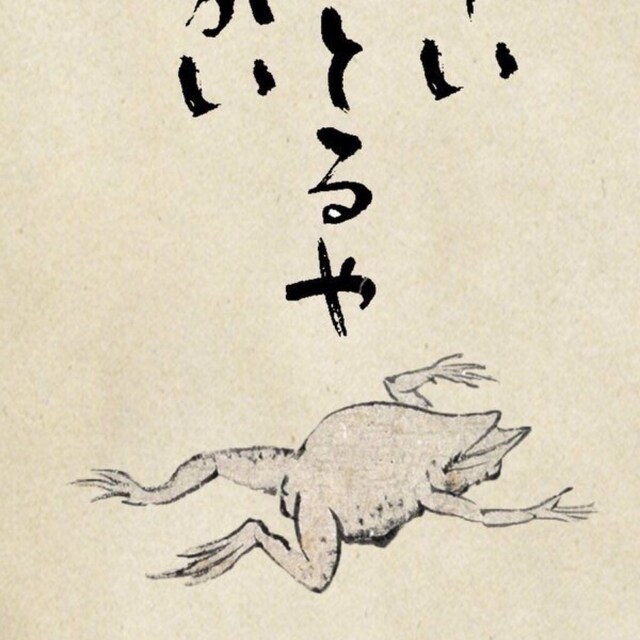 い
とるや
い